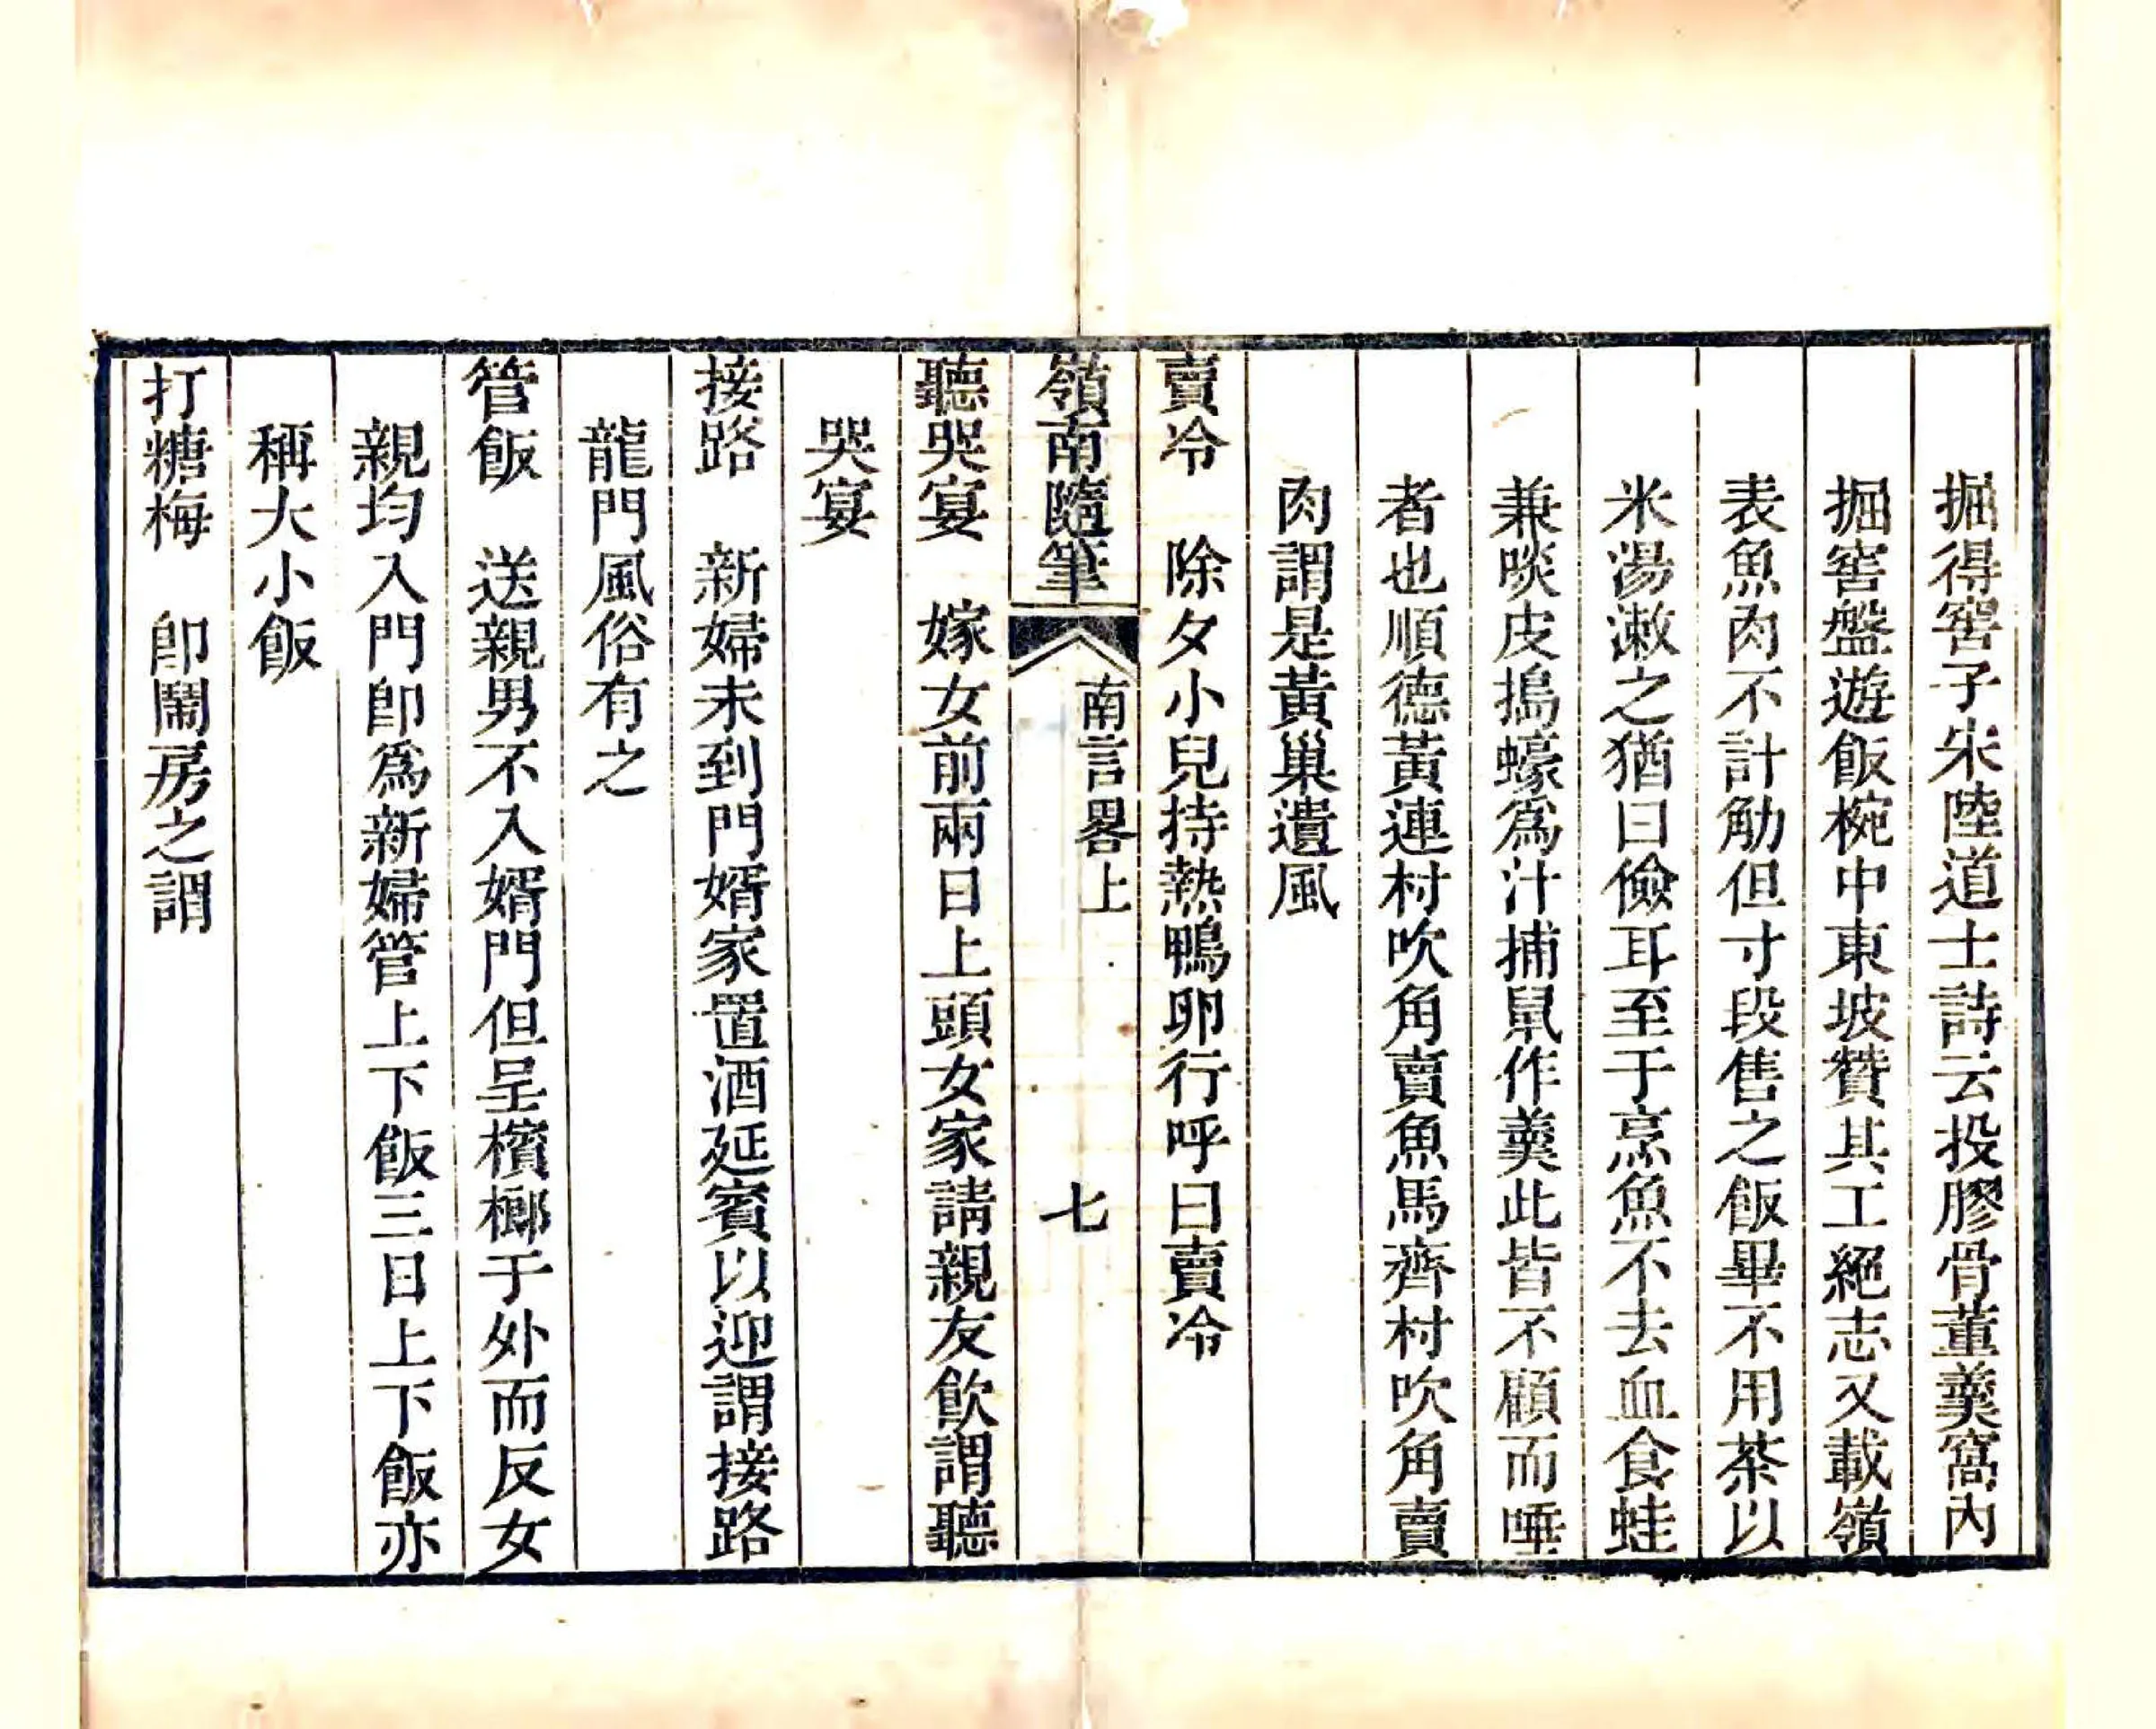 掘得窖子宋陸道士詩云投膠骨董羹窩內
掘窖盤遊飯椀中東坡贊其工絕志又載嶺
表魚肉不計觔但寸段售之飯畢不用茶以
米湯漱之猶曰儉耳至于烹魚不去血食蛙
兼啖皮搗蠔爲汁捕鼠作羹此皆不顧而唾
者也順德黃連村吹角賣魚馬齊村吹角賣
肉謂是黃巢遺風
賣冷　除夕小兒持熱鴨卵行呼曰賣冷
嶺南隨筆　南言畧上　七
聽哭宴　嫁女前兩日上頭女家請親友飲謂聽
哭宴
接路　新婦未到門婿家置酒延賓以迎謂接路
龍門風俗有之
管飯　送親男不入婿門但呈檳榔于外而反女
親均入門卽爲新婦管上下飯三日上下飯亦
稱大小飯
打糖梅　卽鬧房之謂